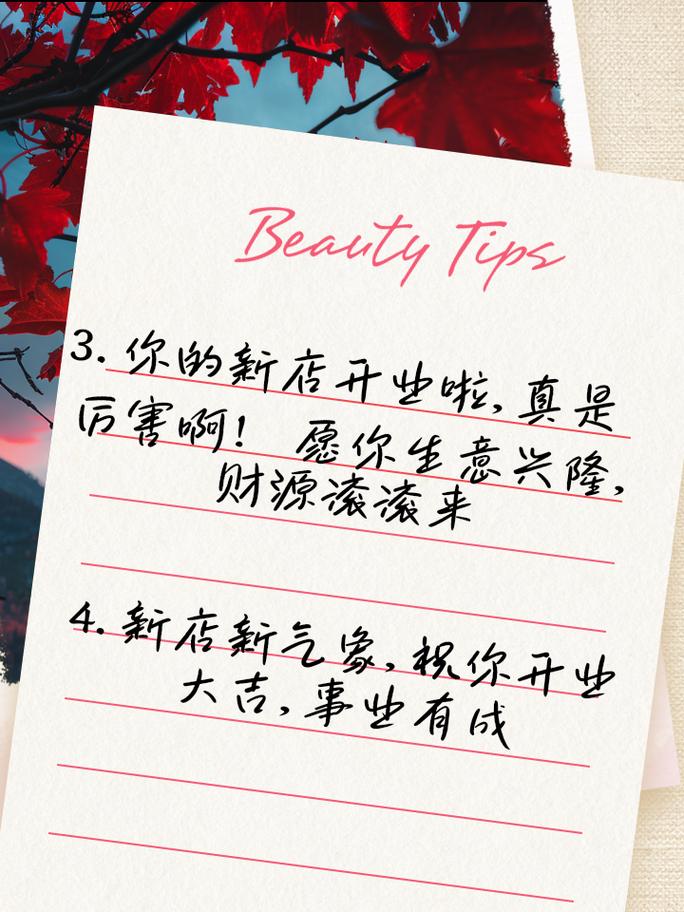 Beauty Tips
3. 你的新店开业啦,真是
厉害啊! 愿你生意兴隆,
财源滚滚来
4. 新店新气象,祝你开业
大吉,事业有成